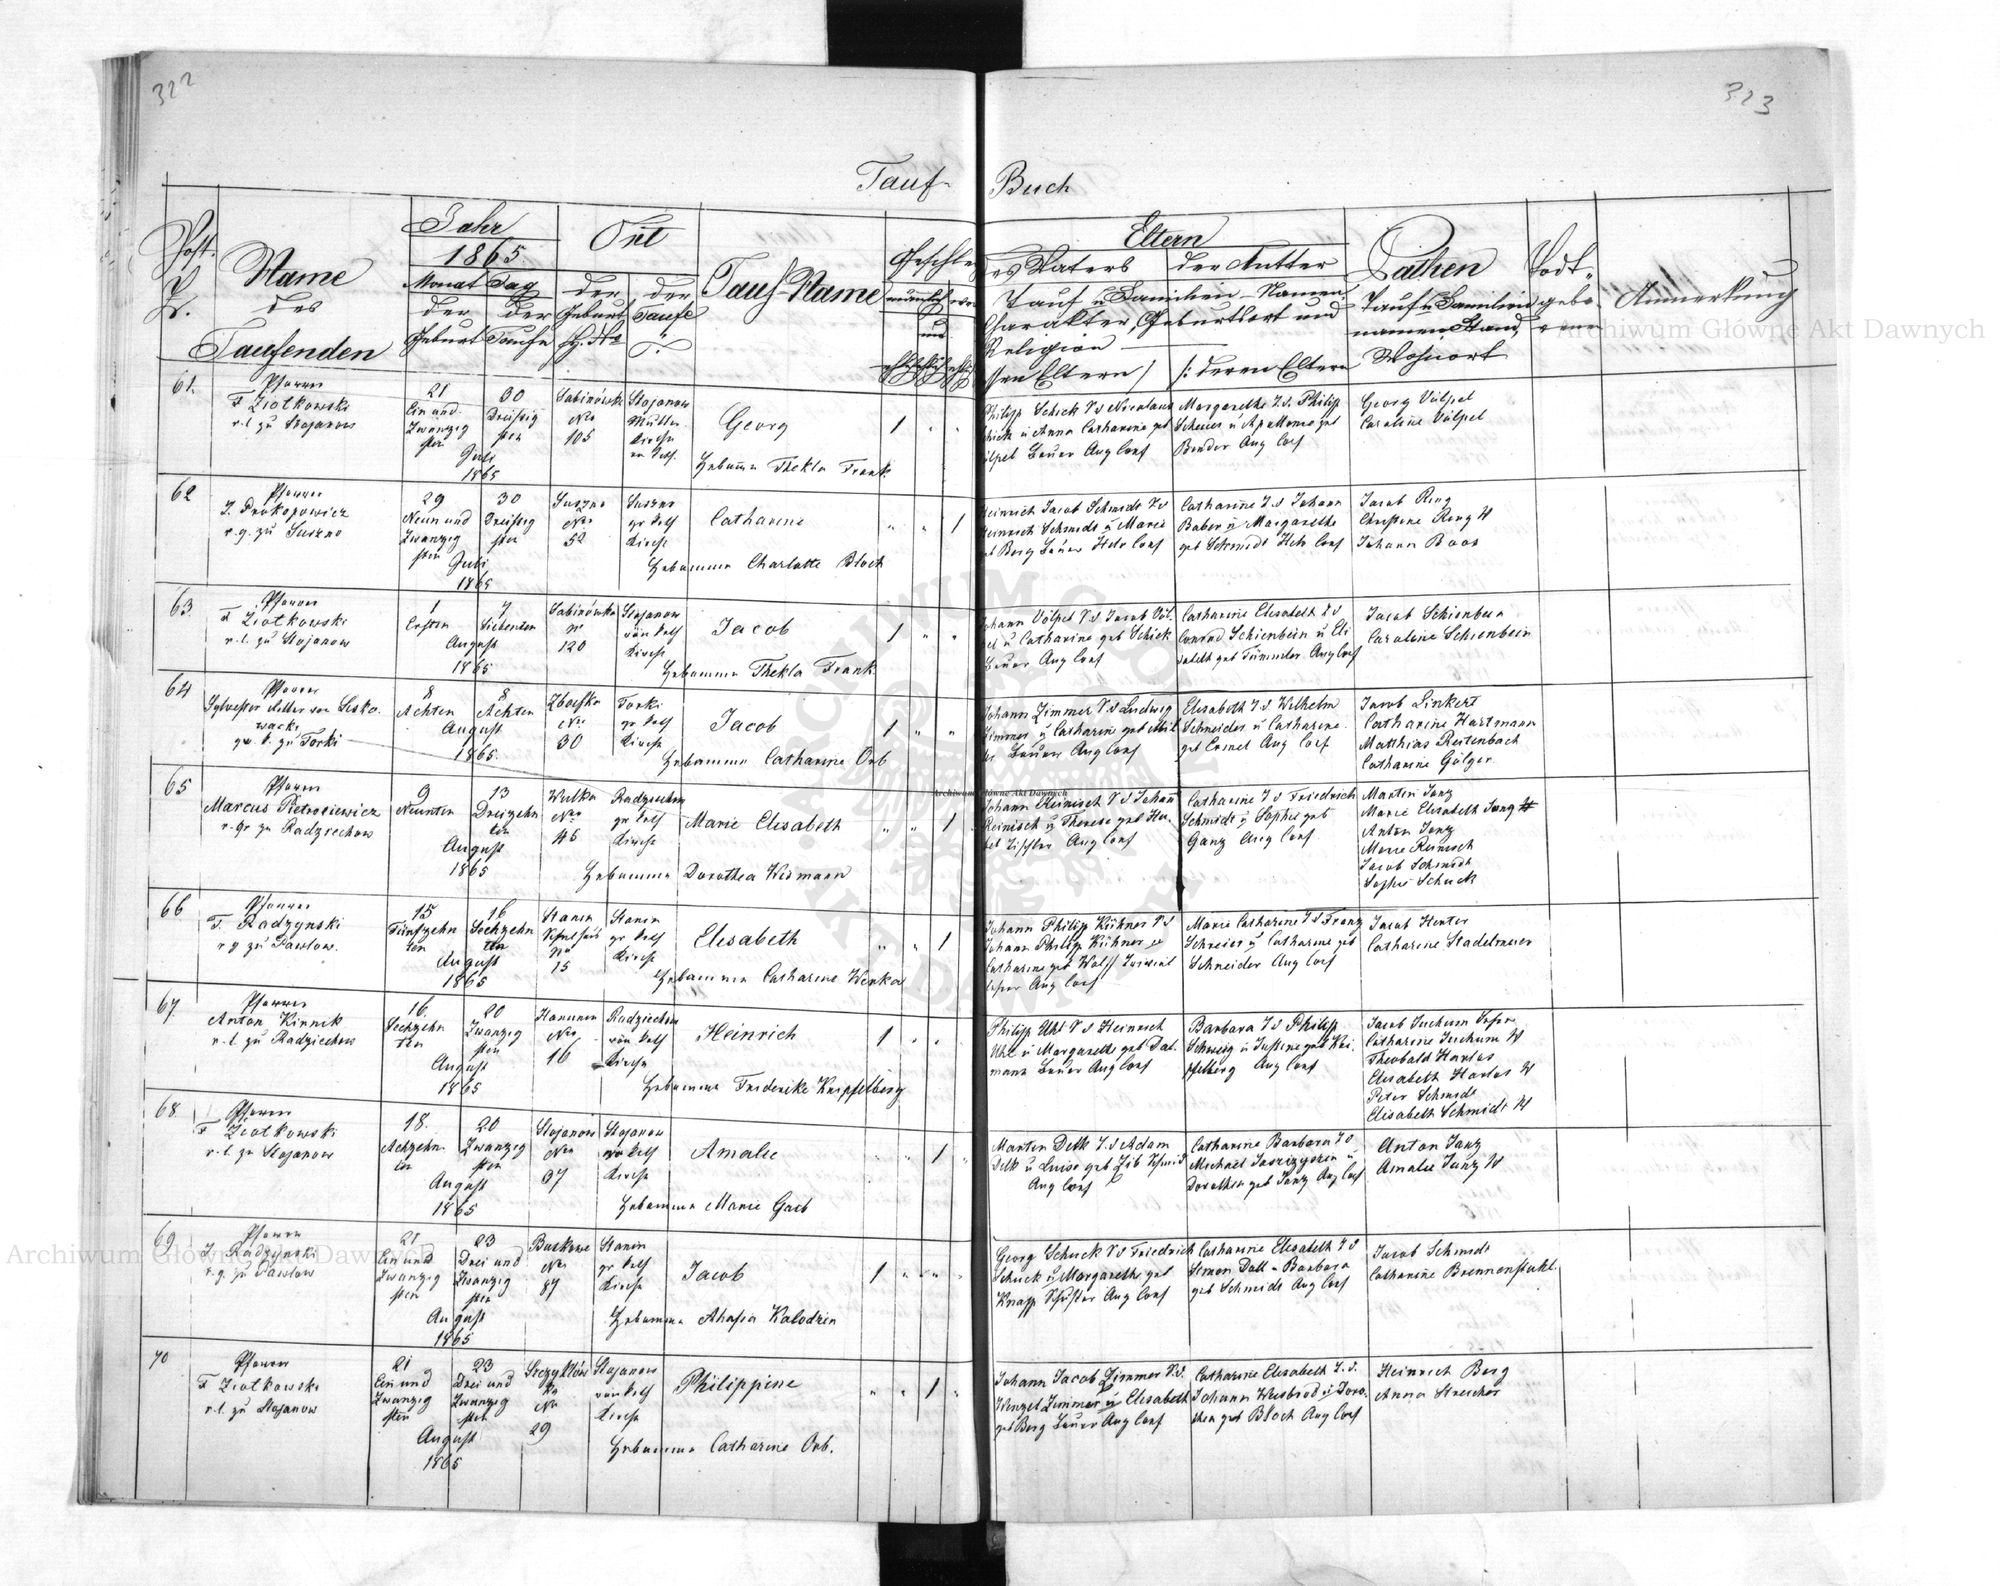 322
323
Tauf-
Buch
Post
Nr.
Name
des
Taufenden
Jahr
1865
Monat Tag
der der
Geburt Taufe
Ort
der der
Geburt Taufe
H. No
Tauf-Name
Geschle
und
Eltern
des Vaters
der Mutter
Tauf u Familien-Namen
Charakter, Geburtsort und
Religion
/: deren Eltern
Pathen
Tauf u Familien
namen, Stand,
Wohnort
Todt-
gebo-
Anmerkung
61.
Pfarrer
F Ziotkowski
r.l. zu Stojanow
21
Ein und
Zwanzig
sten
30
Dreißig
sten
Juli
1865
Sabinówka
Nro
105
Stojanow
Kirche
Georg
Hebamme Thekla Frank
1
Philipp Schick V. d Nicolaus
Schick u Anna Catharina geb
Völpel Bauer Aug Conf
Margarethe T. d. Philipp
Scherer u Apollonia geb
Bender Aug Conf
Georg Völpel
Caroline Völpel
62
Pfarrer
J. Prokopowicz
r.g. zu Suszno
29
Neun und
Zwanzig
sten
30
Dreißig
sten
Juli
1865
Suszno
Nro
52
Suszno
gr kath
Kirche
Catharine
Hebamme Charlotte Bloch
1
Heinrich Jacob Schmidt V d
Heinrich Schmidt u Marie
geb Berg Bauer Helv Conf
Catharine T. d Johann
Baber u Margarethe
geb Schmidt Helv Conf
Jacob Ring
Christine Ring W
Johann Boos
63.
Pfarrer
F Ziotkowski
r.l. zu Stojanow
1
Ersten
7
Siebenden
August
1865
Sabinówka
Nr
120
Stojanow
röm kath
Kirche
Jacob
Hebamme Thekla Frank
1
Johann Völpel V d Jacob Völ-
pel u Catharine geb Schick
Bauer Aug Conf
Catharine Elisabeth T d
Conrad Schienbein u Eli
sabeth geb Tümmler Aug Conf
Jacob Schienbein
Caroline Schienbein
64
Pfarrer
Sylvester Ritter von Lesko-
wacki
gr. k. zu Torki
8
Achten
8
Achten
August
1865.
Zboiska
Nro
30
Torki
gr kath
Kirche
Jacob
Hebamme Catharine Orb
1
Johann Zimmer V d Ludwig
Zimmer u Catharine geb
Bauer Aug Conf
Elisabeth T. d Wilhelm
Schneider u Catharine
geb Ermel Aug Conf
Jacob Linkert
Catharine Hartmann
Matthias Reitenbach
Catharine Gölger
65
Pfarrer
Marcus Pietrosiewicz
r. gr zu Radziechow
9
Neunten
13
Dreizehn
ten
August
1865
Wulka
Nro
45
Radziechow
gr kath
Kirche
Marie Elisabeth
Hebamme Dorothea Widmann
1
Johann Reinisch V d Johann
Reinisch u Therese geb Hu-
ber Tischler Aug Conf
Catharine T d Friedrich
Schmidt u Sophie geb
Ganz Aug Conf
Martin Janz
Marie Elisabeth Janz W
Anton Janz
Marie Reinisch
Jacob Schmidt
Sophie Schuck
66
Pfarrer
F. Radzynski
r g zu Pawlow.
15
Fünfzehn
ten
16
Sechzehn
ten
August
1865
Stanin
Schulhaus
No
15
Stanin
gr kath
Kirche
Elisabeth
Hebamme Catharine Wenka
1
Johann Philip Kühner V d
Johann Philip Kühner u
Catharine geb Wolff
Aug Conf
Marie Catharine T d Franz
Schreier u Catharine geb
Schneider Aug Conf
Jacob Henter
Catharine Stadelmeier
67.
Pfarrer
Anton Kinnik
r. l zu Radziechow
16.
Sechzehn
ten
20
Zwanzig
sten
August
1865
Hanunin
Nro
16
Radziechow
röm kath
Kirche
Heinrich
Hebamme Friderike Knipfelberg
1
Philipp Uhl V d Heinrich
Uhl u Margarethe geb Dal-
mann Bauer Aug Conf
Barbara T d Philipp
Schweig u Justine geb Kni-
pfelberg Aug Conf
Jacob Juchum
Catharine Juchum W
Theobald Harlos
Elisabeth Harlos W
Peter Schmidt
Elisabeth Schmidt W
68.
Pfarrer
F Ziotkowski
r. l zu Stojanow
18.
Achzehn-
ten
20
Zwanzig
sten
August
1865
Stojanow
Nro
37
Stojanow
röm kath
Kirche
Amalie
Hebamme Marie Gaeb
1
Martin Delk V. d Adam
Delk u Luise geb Zib Schmid
Aug Conf
Catharine Barbara T d
Michael u
Dorothea geb Janz Aug Conf
Anton Janz
Amalie Janz W
69
Pfarrer
J. Radzynski
r. g. zu Pawlow
21
Ein und
Zwanzig
sten
23
Drei und
Zwanzig
sten
August
1865
Baskowe
Nro
87
Stanin
gr kath
Kirche
Jacob
Hebamme Ahafia Kolodzin
1
Georg Schuck V d Friedrich
Schuck u Margarethe geb
Knapp Schuster Aug Conf
Catharine Elisabeth T d
Simon Doll u Barbara
geb Schmidt Aug Conf
Jacob Schmidt
Catharine Brennenstuhl
70
Pfarrer
F Ziotkowski
r. l. zu Stojanow
21
Ein und
Zwanzig
sten
23
Drei und
Zwanzig
sten
August
1865
Nro
29
Stojanow
röm kath
Kirche
Philippine
Hebamme Catharine Orb.
1
Johann Jacob Zimmer V. d.
Wenzel Zimmer u Elisabeth
geb Berg Bauer Aug Conf
Catharine Elisabeth T. d.
Johann Weisbrod u Doro-
thea geb Bloch Aug Conf
Heinrich Berg
Anna Streicher
Archiwum Główne Akt Dawnych
Archiwum Główne Akt Dawnych
Archiwum Główne Akt Dawnych
ARCHIWUM GŁÓWNE AKT DAWNYCH